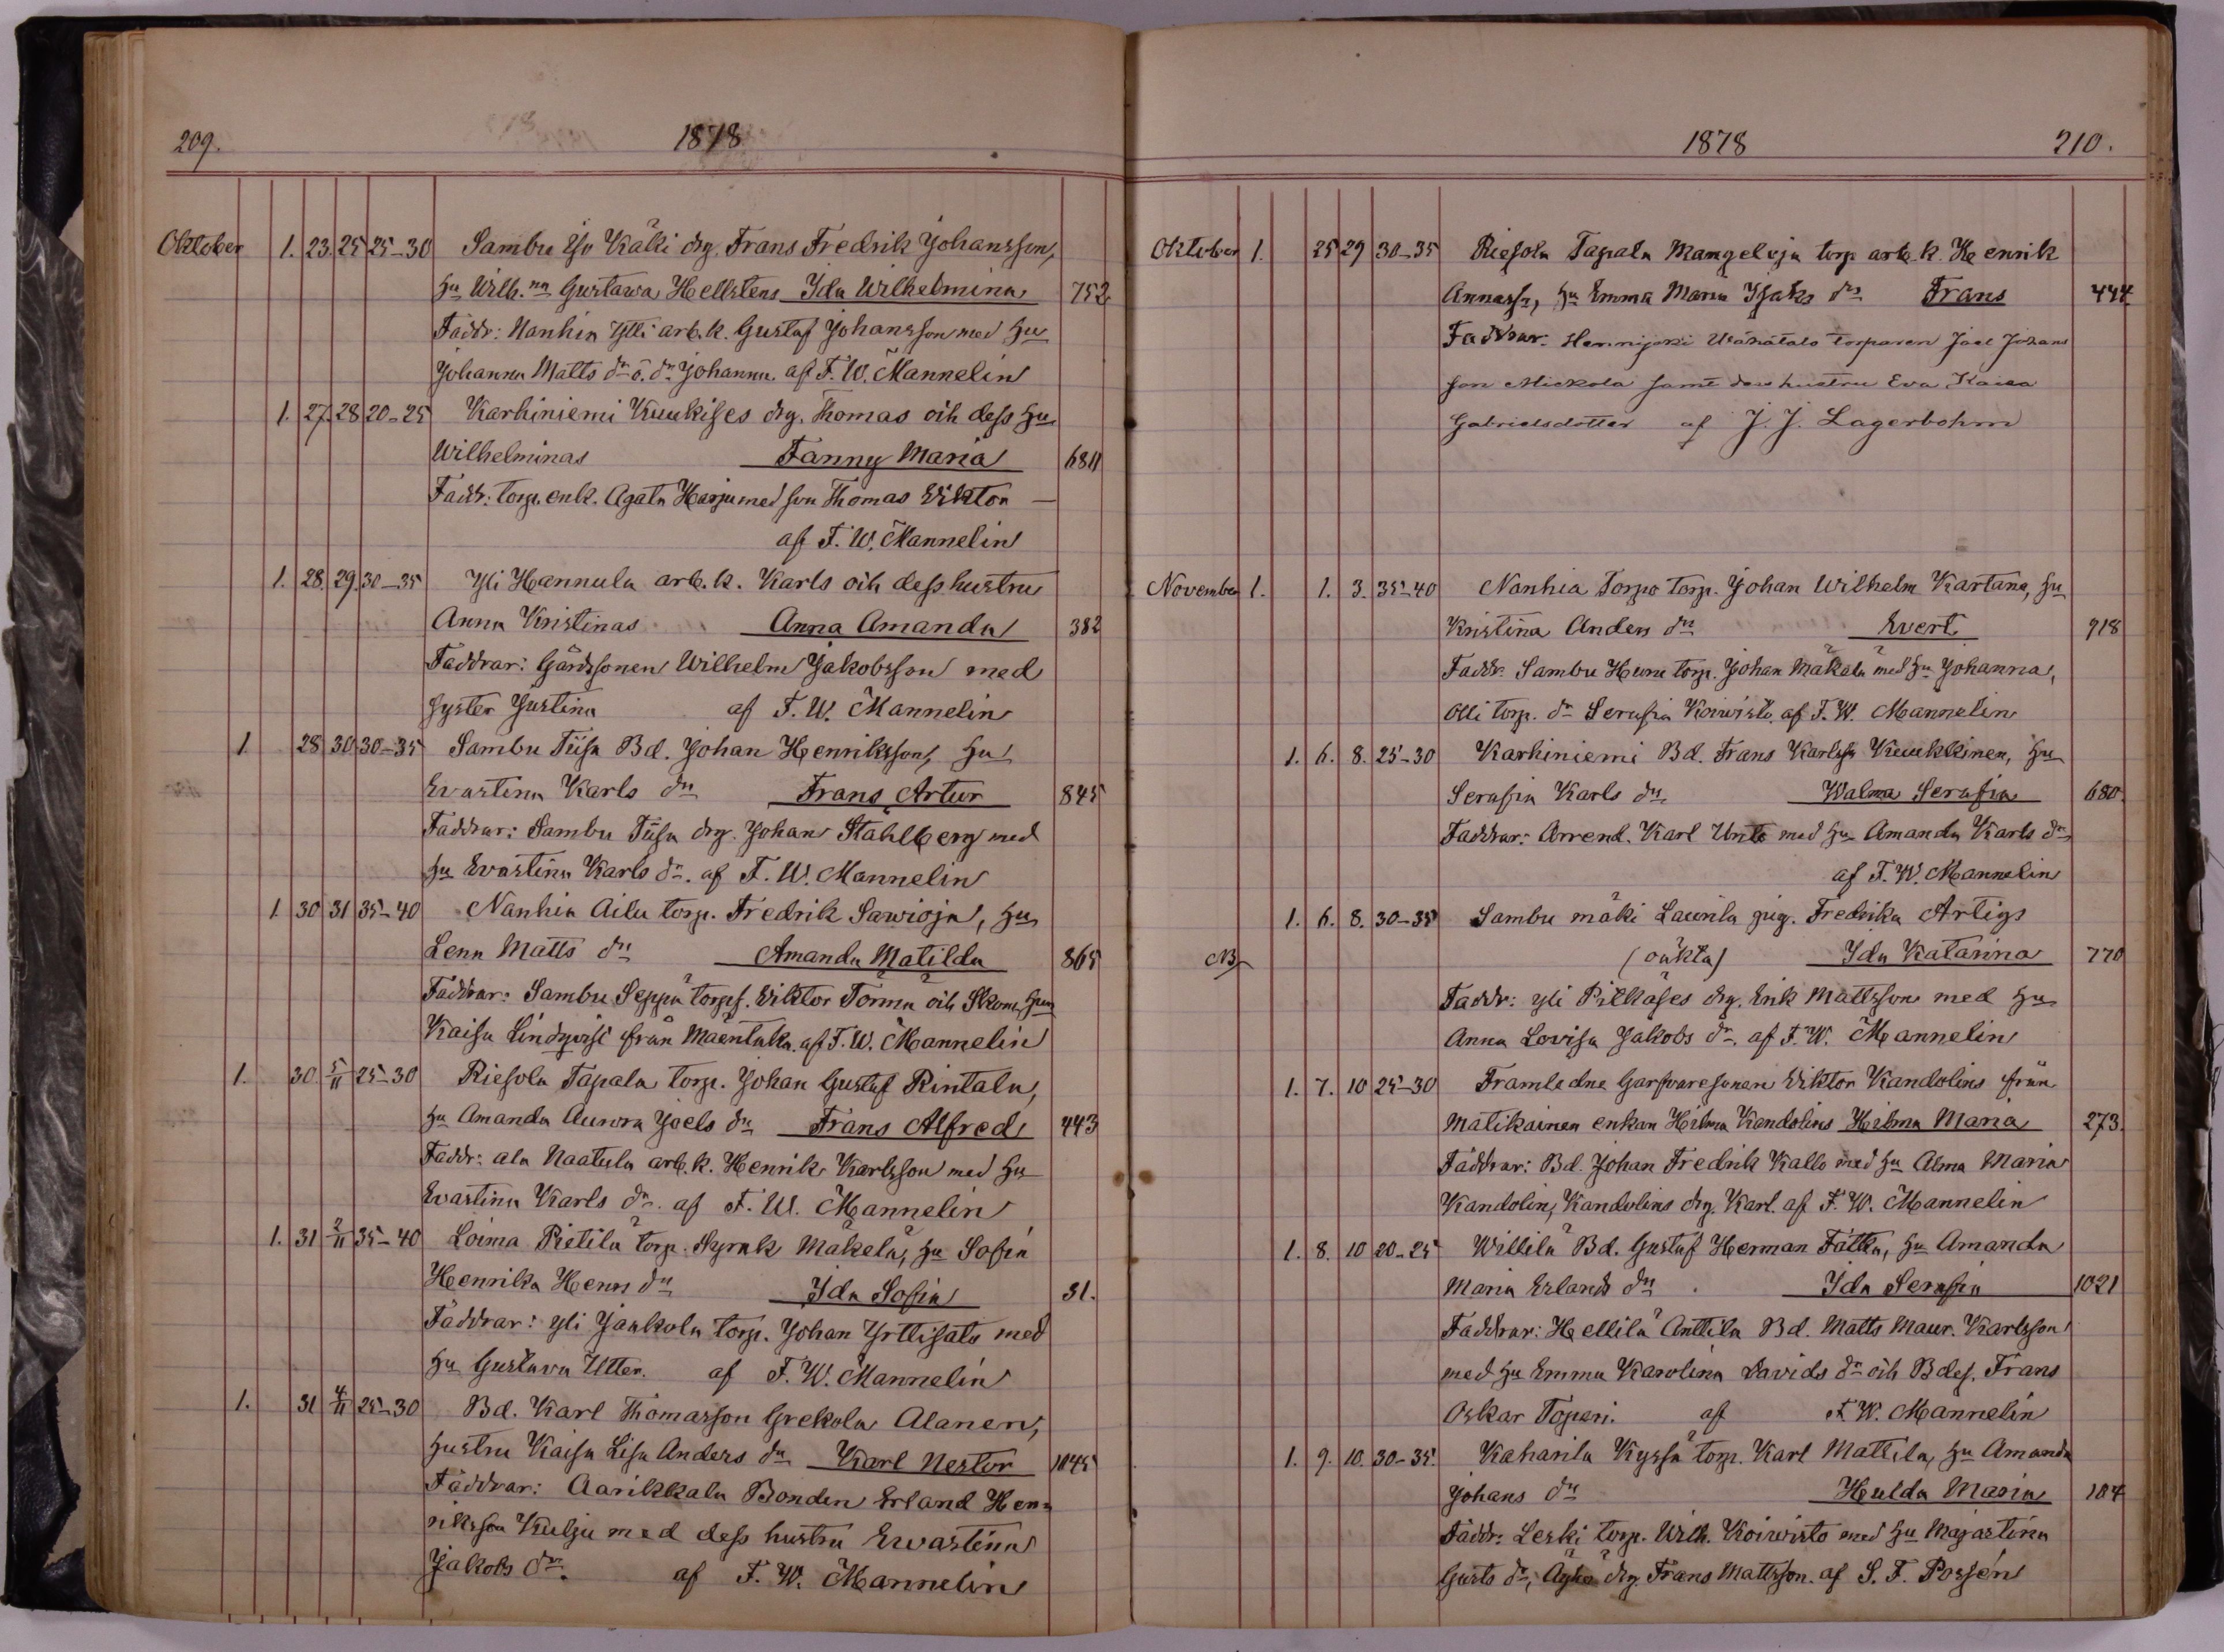 209. 1878
Oktober 1. 23. 25 25-30 Sambu Iso Käki drg. Frans Fredrik Johansson,
hu Wilh.na Gustawa Hellstens Ida Wilhelmina 752
Faddr: Nanhia Ylli arb.k. Gustaf Johansson med hu
Johanna Matts dr o. dr Johanna. af F. W. Mannelin
1. 27. 28 20-25 Karhiniemi Kuukises drg. Thomas och dess hu
Wilhelminas Fanny Maria 681
Faddr: torp. enk. Agata Harju med son Thomas Viktor —
af F. W. Mannelin
1. 28. 29. 30-35 Yli Hannula arb. k. Karls och dess hustru
Anna Kristinas Anna Amanda 382
Faddrar: Gårdssonen Wilhelm Jakobsson med
syster Justina af F. W. Mannelin
1 28 30 30-35 Sambu Tiisa Bd. Johan Henriksson, hu
Evastina Karls dr Frans Artur 845
Faddrar: Sambu Tiisa drg. Johan Ståhlberg med
hu Evastina Karls dr. af F. W. Mannelin
1. 30 31 35-40 Nanhia Ailu torp. Fredrik Sawioja, hu
Lena Matts dr Amanda Matilda 865
Faddrar: Sambu Seppä torps. Viktor Törmä och Skom. hun
Kaisa Lindqvist från Mäentaka. af F. W. Mannelin
1. 30 5/11 25-30 Riesola Tapala torp. Johan Gustaf Rintala,
hu Amanda Aurora Joels dr Frans Alfred 443
Faddr: ala Naatula arb. k. Henrik Karlsson med hu
Evastina Karls dr. af F. W. Mannelin
1. 31 2/11 35-40 Loima Pietilä torp. Syrak Mäkelä, hu Sofia
Henrika Henrs dr Ida Sofia 31.
Faddrar: yli Jaakola torp. Johan Yrttisalo med
hu Gustava Utter. af F. W. Mannelin
1. 31 4/11 25-30 Bd. Karl Thomasson Grekola Alanen,
hustru Kaisa Lisa Anders dr Karl Nestor 1045
Faddrar: Aarikkala Bonden Erland Hen=
riksson Kulju med dess hustru Ewastina
Jakobs dr. af F. W. Mannelin
1878 210.
Oktober 1. 25 29 30-35 Riesola Tapala Mangeloja torp arb. k. Henrik
Annass., hu Emma Maria Isaks dr Frans 444
Faddrar: Hennijoki Wähätalo torparen Joel Johans
son Mickola samt dess hustru Eva Kaisa
Gabrielsdotter af J. J. Lagerbohm
November 1. 1. 3. 35-40 Nanhia Torpo torp. Johan Wilhelm Kartana, hu
Kristina Anders dr Evert 918
Faddr. Sambu Heru torp. Johan Mäkälä med hu Johanna,
Olli torp. dr Serafia Koiwisto. af F. W. Mannelin
1. 6. 8. 25-30 Karhiniemi Bd. Frans Karlss. Kuukkinen, hu
Serafia Karls dr. Walma Serafia 680.
Faddrar: Arrend. Karl Unto med hu Amanda Karls dr
af F. W. Mannelin
1. 6. 8. 30-35 Sambu mäki Laurila pig. Fredrika Artigs
NB (oäkta) Ida Katarina 770
Faddr: yli Pitkäses drg. Erik Mattsson med hu
Anna Lovisa Jakobs dr. af F. W. Mannelin
1. 7. 10 25-30 Framledne Garfvaresonen Viktor Kandolins från
Matikainen enkan Hilma Kandolins Hilma Maria 273.
Faddrar: Bd. Johan Fredrik Kallo med hu Alma Maria
Kandolin, Kandolins drg. Karl. af F. W. Mannelin
1. 8. 10 20-25 Willilä Bd. Gustaf Herman Fätka, hu Amanda
Maria Erlands dr Ida Serafia 1021
Faddrar: Hellilä Anttila Bd. Matts Maur. Karlsson
med hu Emma Karolina Davids dr och Bdes. Frans
Oskar Toperi. af F. W. Mannelin
1. 9. 10. 30-35. Kaharila Kyssä torp. Karl Mattila, hu Amanda
Johans dr Hulda Maria 104
Faddr: Leski torp. Wilh. Koiwisto med hu Majastina
Gusts dr, drg. Frans Mattsson. af S. F. Possén